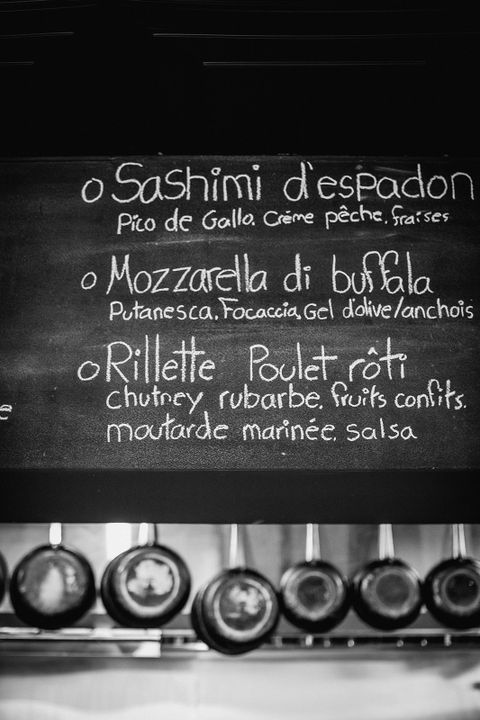 o Sashimi d'espadon
Pico de Gallo. Crème pêche. fraises
o Mozzarella di buffala
Putanesca. Focaccia, Gel d'olive/anchois
o Rillette Poulet rôti
chutney rubarbe. fruits confits.
moutarde marinée. salsa